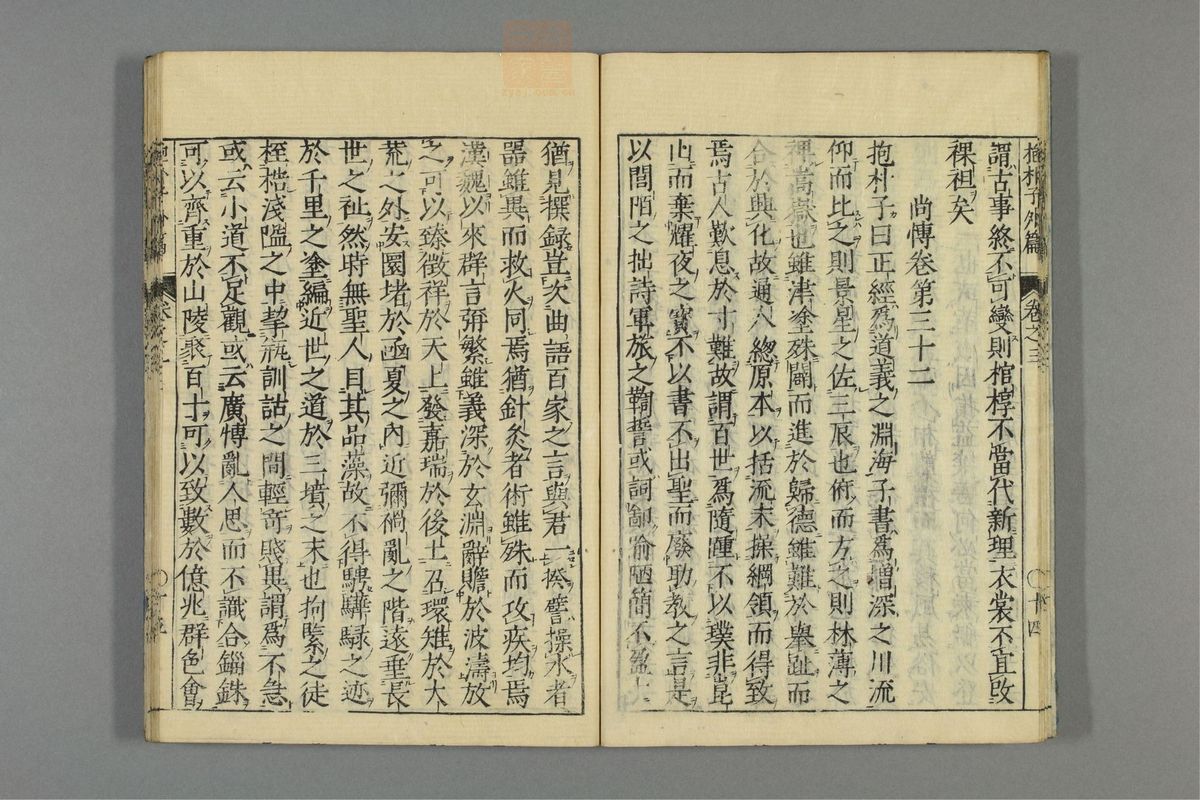 抱朴子外篇 卷之三 十四
謂古事終不可變則棺槨不當代薪埋衣裳不宜改
裸袒矣
尚博卷第三十二
抱朴子曰正經爲道義之淵海子書爲增深之川流
仰而比之則景星之佐三辰也俯而方之則林薄之
裨嵩嶽也雖津塗殊闢而進於歸德雖難於舉趾而
合於興化故通人總原本以括流末操綱領而得致
焉古人歎息於才難故謂百世爲隨踵不以璞非崑
山而棄耀夜之寶不以書不出聖而廢助教之言是
以閭陌之拙詩軍旅之鞫誓或詞鄙喻陋簡不盈十
猶見撰録豈次曲語百家之言與君一揆譬操水者
器雖異而救火同焉猶針灸者術雖殊而攻疾均焉
漢魏以來群言彌繁雖義深於玄淵辭贍於波濤放
之可以臻徵祥於天上發嘉瑞於後土召環雉於大
荒之外安圜堵於函夏之內近彌禍亂之階遠垂長
世之祉然時無聖人目其品藻故不得騁驊騄之迹
於千里之塗編近世之道於三墳之末也拘繫之徒
桎梏淺隘之中挈瓶訓詁之間輕奇賤異謂爲不急
或云小道不足觀或云廣博亂人思而不識合錙銖
可以齊重於山陵聚百十可以致數於億兆群色會